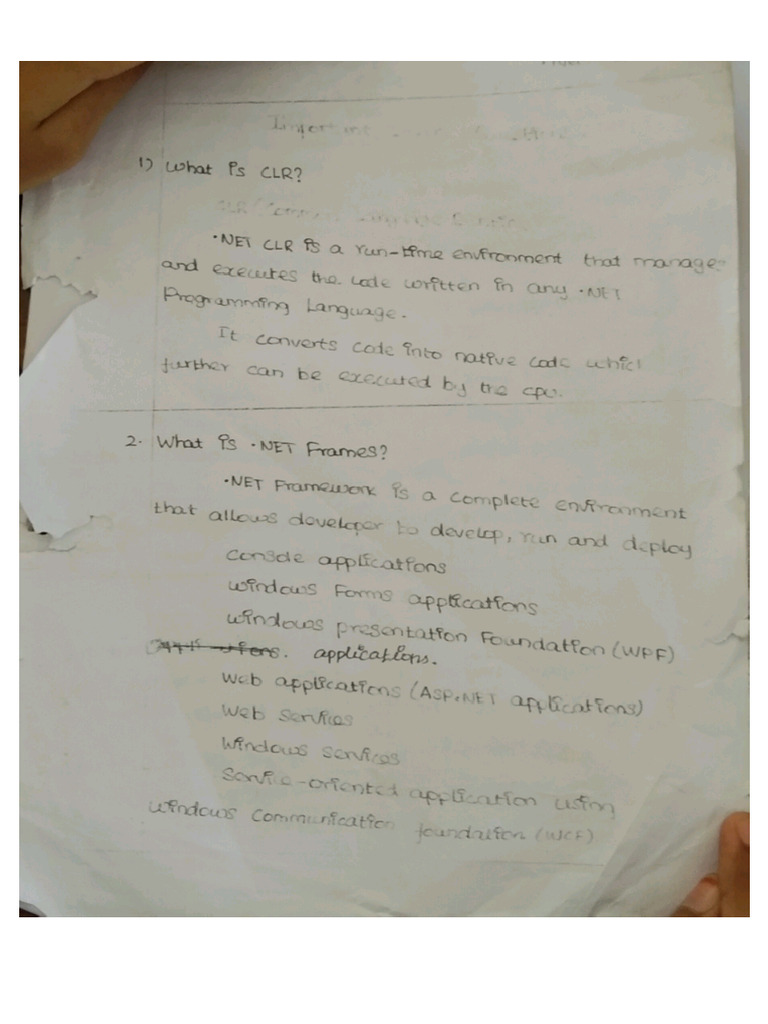 Important
1) What is CLR?
CLR (Common Language Runtime
.NET CLR is a run-time environment that manage
and executes the code written in any .NET
Programming Language.
It converts code into native code which
further can be executed by the cpu.
2. What is .NET Frames?
.NET Framework is a complete environment
that allows developer to develop, run and deploy
Console applications
Windows Forms applications
Windows presentation Foundation (WPF)
applications.
Web applications (ASP.NET applications)
Web services
Windows services
Service-oriented application using
windows Communication foundation (WCF)